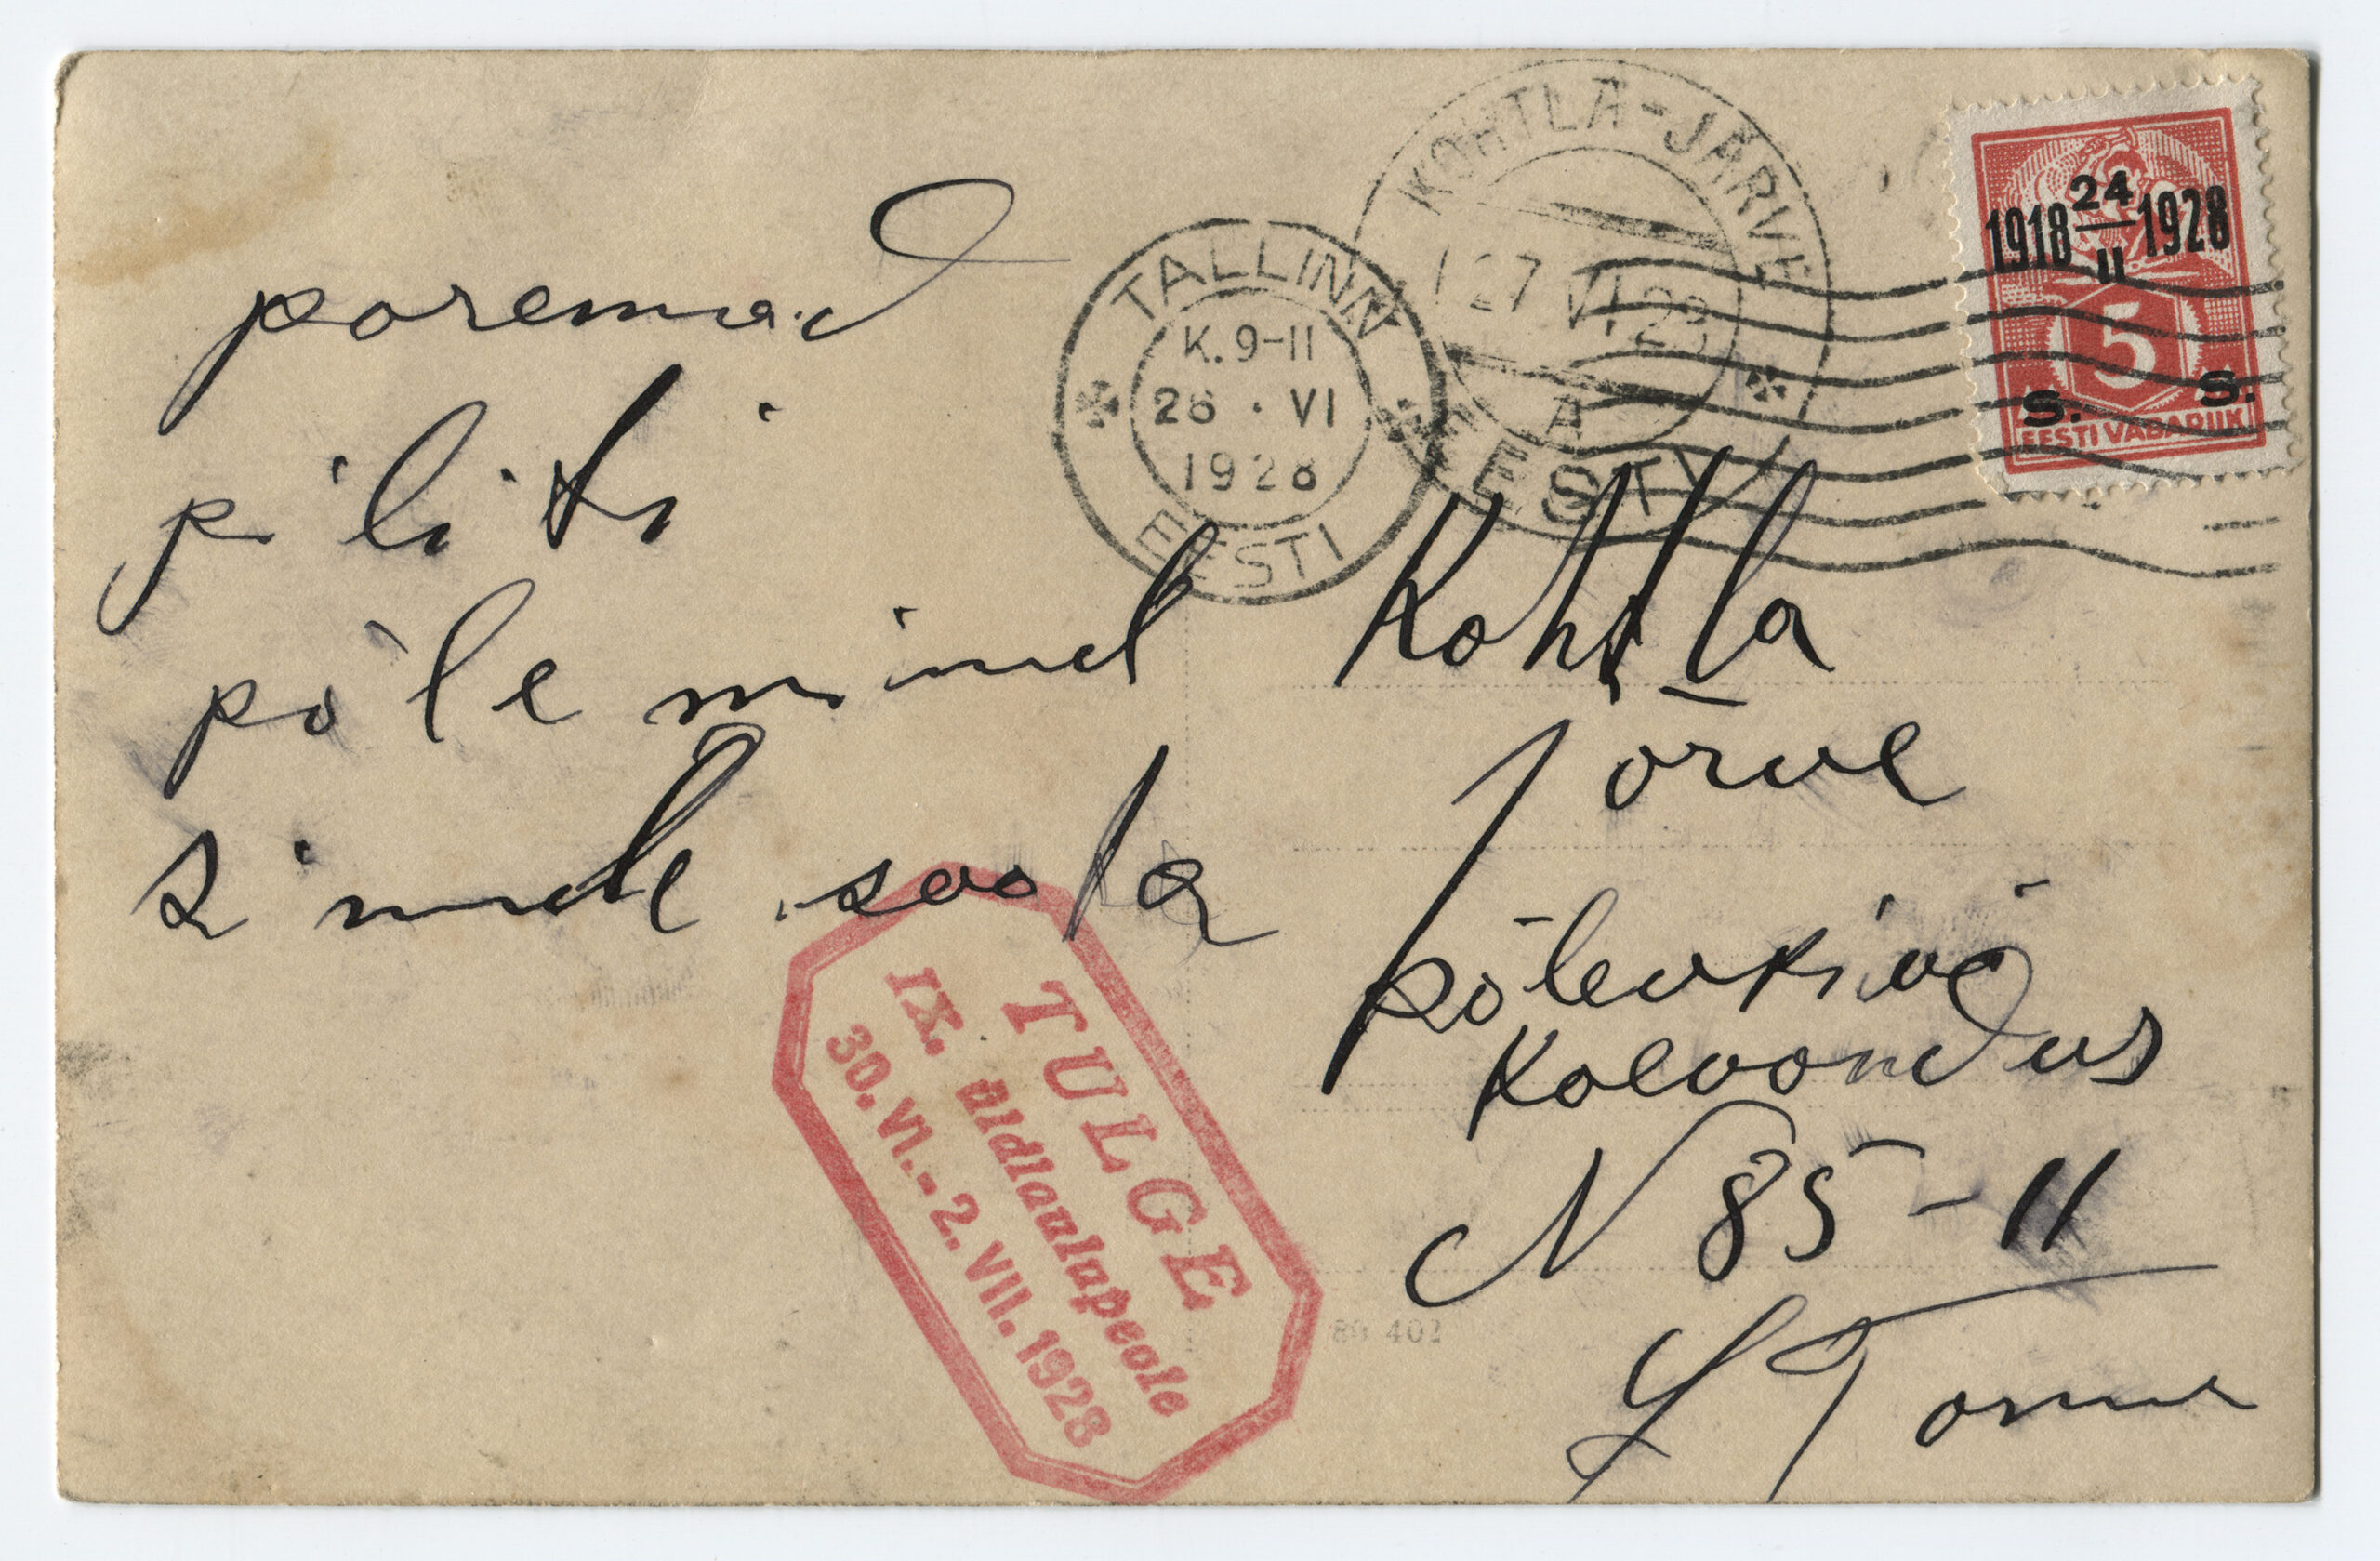 poremad
piliti
põle minul
sinule soata
TALLINN
K. 9-11
26 · VI
1928
EESTI
KOHTLA-JÄRVE
27 VI. 28
A
EESTI
1918 24/II 1928
5
S. S.
EESTI VABARIIK
Kohtla
Järve
põlevkivi
Kaevandus
N 85-11
L Toma
TULGE
IX. üldlaulupeole
30. VI. - 2. VII. 1928
80 402